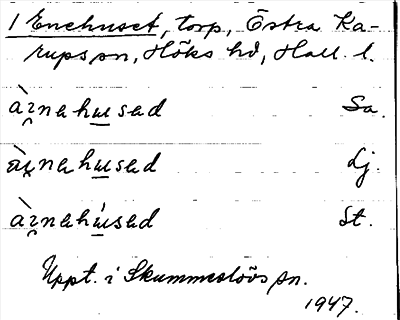 1 Enehuset, torp, Östra Ka-
rups sn, Höks hd, Hall. l.
àı̯nahu̲sad Sa.
àı̯nahu̲sad Lj.
àı̯nahú̲sad St.
Uppt. i Skummeslövs sn.
1947.